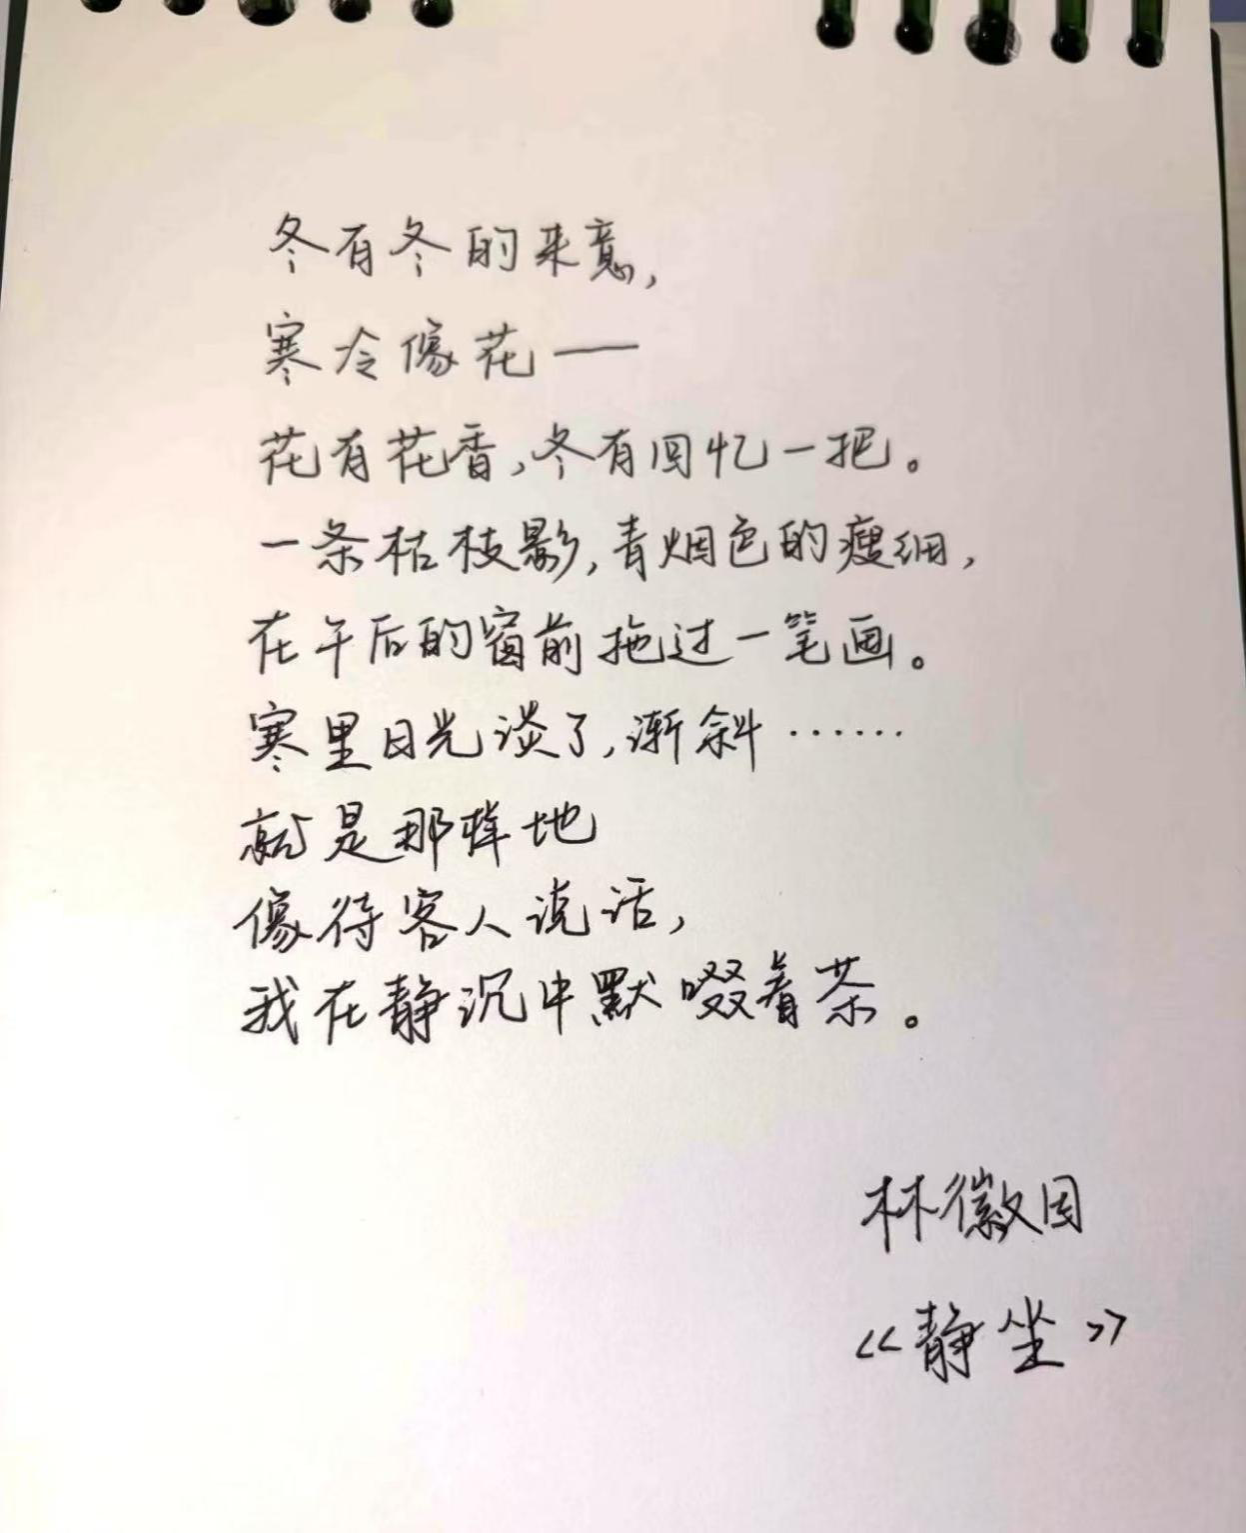 冬有冬的来意，
寒冷像花——
花有花香，冬有回忆一把。
一条枯枝影，青烟色的瘦细，
在午后的窗前拖过一笔画。
寒里日光淡了，渐斜……
就是那样地
像待客人说话，
我在静沉中默啜着茶。
林徽因
《静坐》